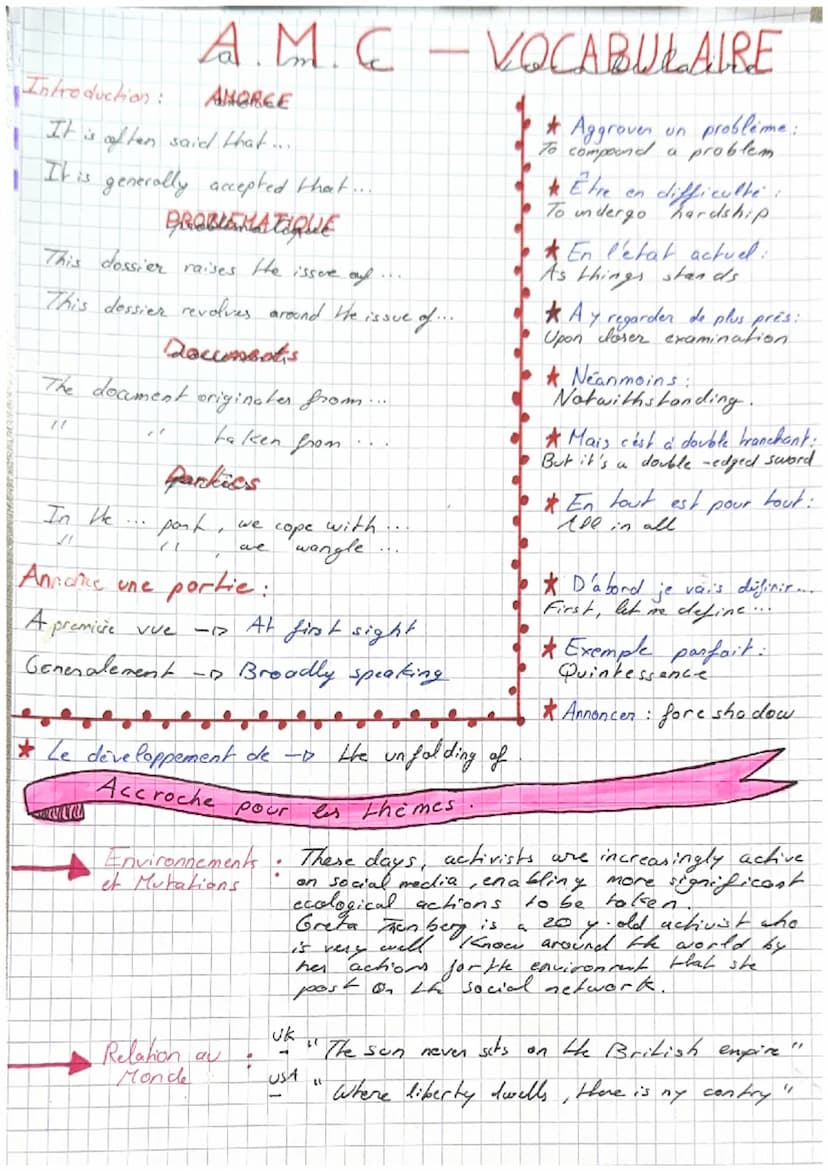 A.M.C – VOCABULAIRE
Introduction : AMORCE
It is often said that...
It is generally accepted that...
PROBLEMATIQUE
This dossier raises the issue of ...
This dossier revolves around the issue of...
Documents
The document originates from...
" " taken from ...
Parties
In the ... part, we cope with ...
" " , we wangle ...
Annonce une partie :
A première vue → At first sight
Generalement → Broadly speaking
★ Aggraver un problème :
To compound a problem
★ Être en difficulté :
To undergo hardship
★ En l'état actuel :
As things stands
★ A y regarder de plus près :
Upon closer examination
★ Néanmoins :
Notwithstanding.
★ Mais c'est à double tranchant :
But it's a double-edged sword
★ En tout est pour tout :
All in all
★ D'abord je vais définir...
First, let me define...
★ Exemple parfait :
Quintessence
★ Annoncer : foreshadow
★ Le développement de → the unfolding of.
Accroche pour les thèmes.
Environnements : These days, activists are increasingly active
et Mutations on social media, enabling more significant
ecological actions to be taken.
Greta Tunberg is a 20 y.old activist who
is very well know around the world by
her actions for the environment that she
post on the social network.
Relation au : UK "The sun never sets on the British empire"
Monde USA "Where liberty dwells, there is my contry"